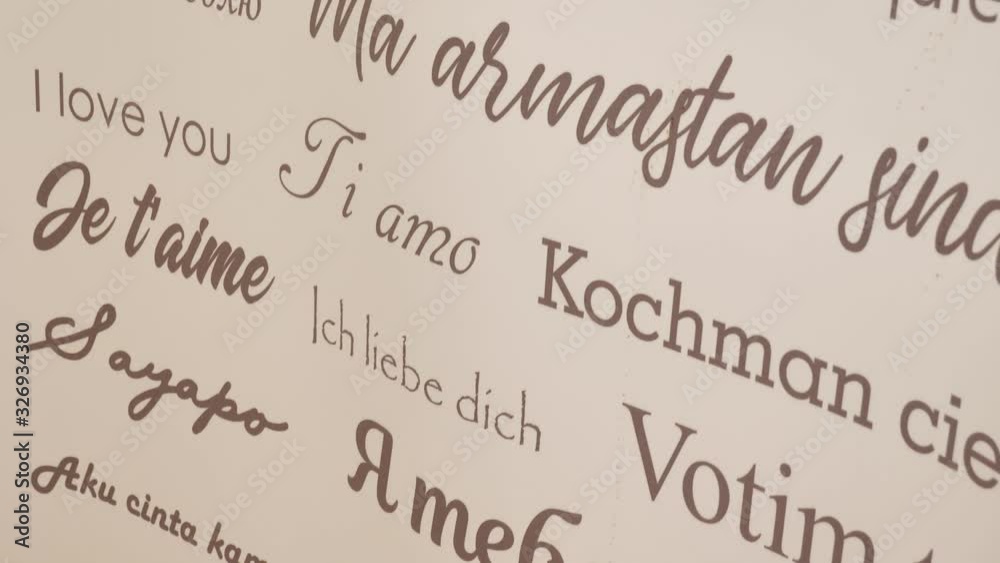 Ma armastan sind
I love you
Ti amo
Je t'aime
Kochman cie
Ich liebe dich
Sayapo
Votim
Я теб
Aku cinta kam
Adobe Stock | #326934380